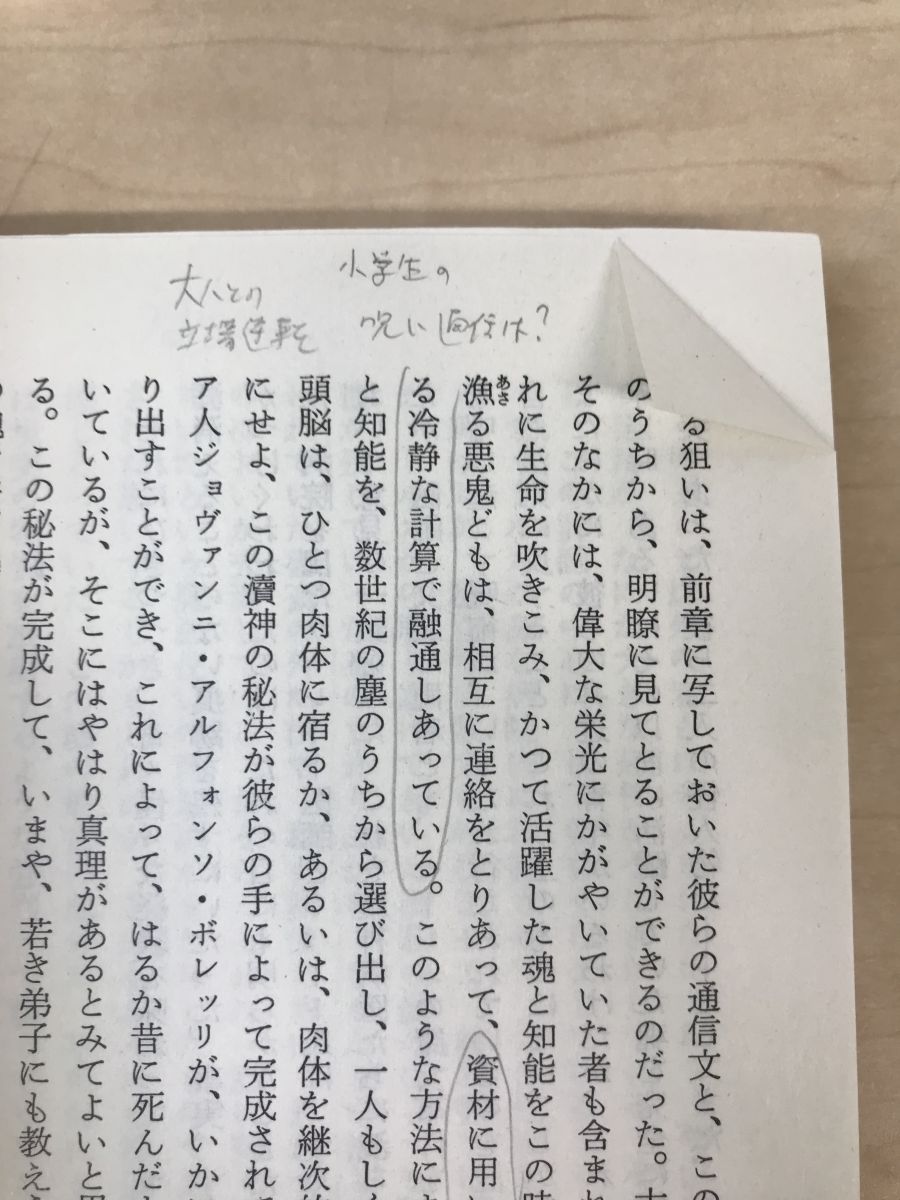 小学生の
呪い返信は?
大人との
立場逆転
る狙いは、前章に写しておいた彼らの通信文と、この
のうちから、明瞭に見てとることができるのだった。
そのなかには、偉大な栄光にかがやいていた者も含まれ
れに生命を吹きこみ、かつて活躍した魂と知能をこの時
漁る悪鬼どもは、相互に連絡をとりあって、資材に用い
あさ
る冷静な計算で融通しあっている。このような方法に
と知能を、数世紀の塵のうちから選び出し、一人もしく
頭脳は、ひとつ肉体に宿るか、あるいは、肉体を継次的
にせよ、この瀆神の秘法が彼らの手によって完成され
ア人ジョヴァンニ・アルフォンソ・ボレッリが、いか
り出すことができ、これによって、はるか昔に死んだ
いているが、そこにはやはり真理があるとみてよいと
る。この秘法が完成して、いまや、若き弟子にも教え